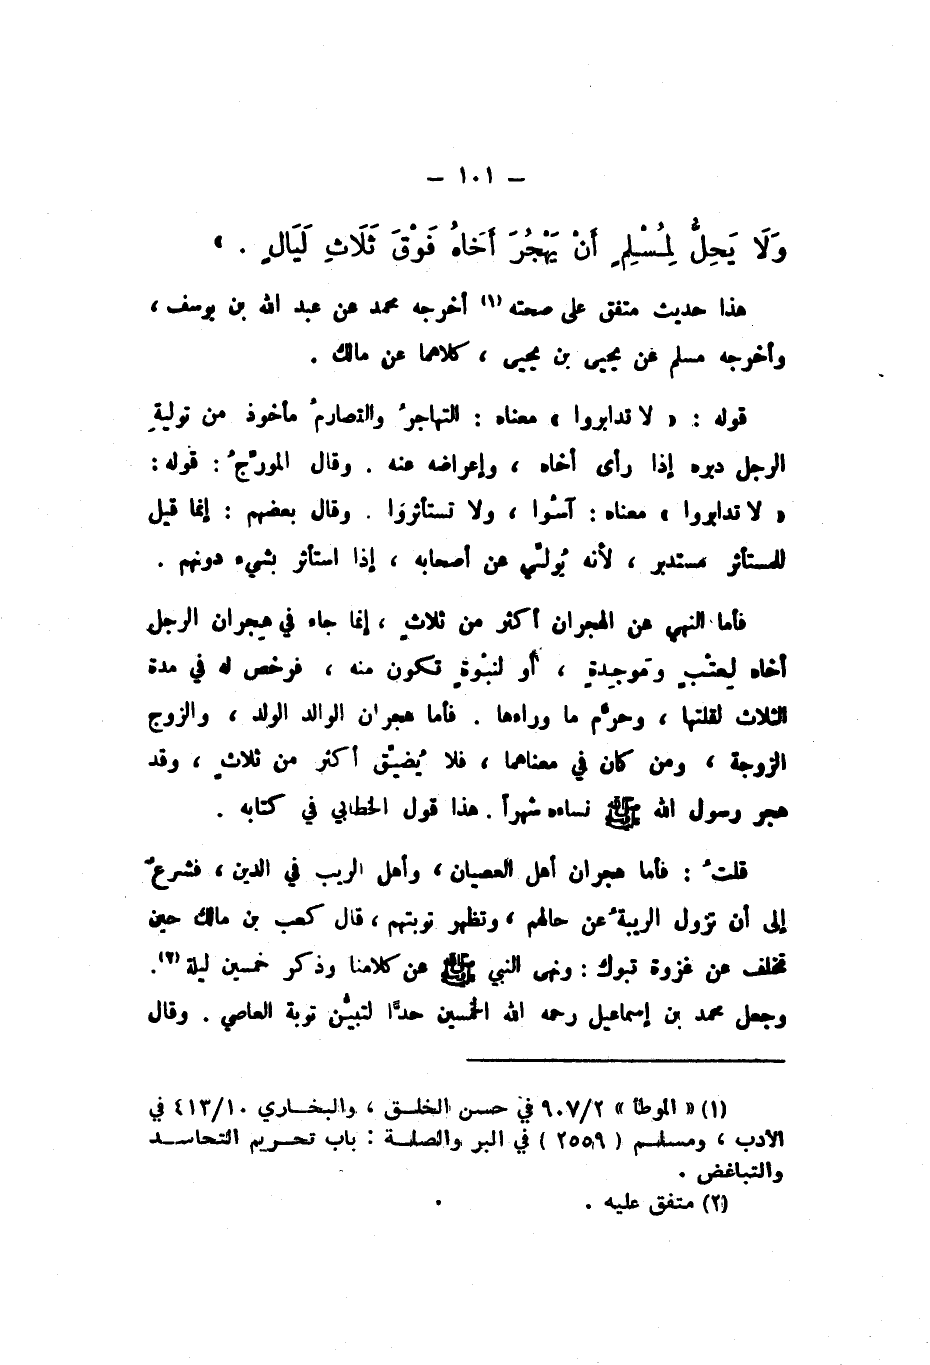 – ١٠١ –
وَلَا يَحِلُّ لِمُسْلِمٍ أَنْ يَهْجُرَ أَخَاهُ فَوْقَ ثَلَاثِ لَيَالٍ . »
هذا حديث متفق على صحته (١) أخرجه محمد عن عبد الله بن يوسف ،
وأخرجه مسلم عن يحيى بن يحيى ، كلاهما عن مالك .
قوله : « لا تدابروا » معناه : التهاجرُ والتصارمُ مأخوذ من توليةِ
الرجل دبره إذا رأى أخاه ، وإعراضه عنه . وقال المورّجُ : قوله :
« لا تدابروا » معناه : آسُوا ، ولا تستأثروا . وقال بعضهم : إنما قيل
للمستأثر مستدبر ، لأنه يُولّي عن أصحابه ، إذا استأثر بشيء دونهم .
فأما النهي عن الهجران أكثر من ثلاثٍ ، إنما جاء في هِجران الرجل
أخاه لِعتْبٍ ومَوجِدةٍ ، أو لنبْوةٍ تكون منه ، فرخص له في مدة
الثلاث لقلتها ، وحرّم ما وراءها . فأما هجران الوالد الولد ، والزوج
الزوجة ، ومن كان في معناهما ، فلا يُضيّق أكثر من ثلاثٍ ، وقد
هجر رسول الله ﷺ نساءه شهراً . هذا قول الخطابي في كتابه .
قلتُ : فأما هجران أهل العصيان ، وأهل الريب في الدين ، فشرعٌ
إلى أن تزول الريبةُ عن حالهم ، وتظهر توبتهم ، قال كعب بن مالك حين
تخلف عن غزوة تبوك : ونهى النبي ﷺ عن كلامنا وذكر خمسين ليلة (٢).
وجعل محمد بن إسماعيل رحمه الله الخمسين حدًّا لتبيُّن توبة العاصي . وقال
(١) « الموطأ » ٩٠٧/٢ في حسن الخلق ، والبخاري ٤١٣/١٠ في
الأدب ، ومسلم ( ٢٥٥٩ ) في البر والصلة : باب تحريم التحاسد
والتباغض .
(٢) متفق عليه .